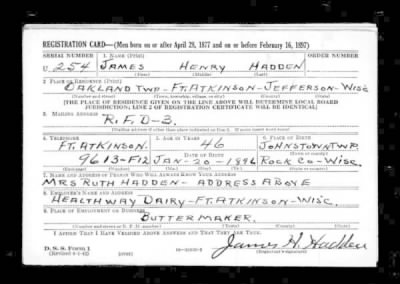 REGISTRATION CARD—(Men born on or after April 28, 1877 and on or before February 16, 1897)
SERIAL NUMBER 1. NAME (Print) ORDER NUMBER
U 254 JAMES HENRY HADDEN
(First) (Middle) (Last)
2. PLACE OF RESIDENCE (Print)
OAKLAND TWP-FT.ATKINSON-JEFFERSON-WISC
(Number and street) (Town, township, village, or city) (County) (State)
[THE PLACE OF RESIDENCE GIVEN ON THE LINE ABOVE WILL DETERMINE LOCAL BOARD
JURISDICTION; LINE 2 OF REGISTRATION CERTIFICATE WILL BE IDENTICAL]
3. MAILING ADDRESS
R.F.D-3.
[Mailing address if other than place indicated on line 2. If same insert word same]
4. TELEPHONE 5. AGE IN YEARS 6. PLACE OF BIRTH
FT. ATKINSON. 46 JOHNSTOWN TWP.
DATE OF BIRTH
9613-F12 JAN-20-1896 ROCK CO-WISC.
(Exchange) (Number) (Mo.) (Day) (Yr.) (State or country)
7. NAME AND ADDRESS OF PERSON WHO WILL ALWAYS KNOW YOUR ADDRESS
MRS RUTH HADDEN-ADDRESS ABOVE
8. EMPLOYER'S NAME AND ADDRESS
HEALTHWAY DAIRY-FT.ATKINSON-WISC.
9. PLACE OF EMPLOYMENT OR BUSINESS
BUTTERMAKER.
(Number and street or R. F. D. number) (Town) (County) (State)
I AFFIRM THAT I HAVE VERIFIED ABOVE ANSWERS AND THAT THEY ARE TRUE.
D. S. S. Form 1
(Revised 4-1-42) (over) James H. Hadden
(Registrant's signature)